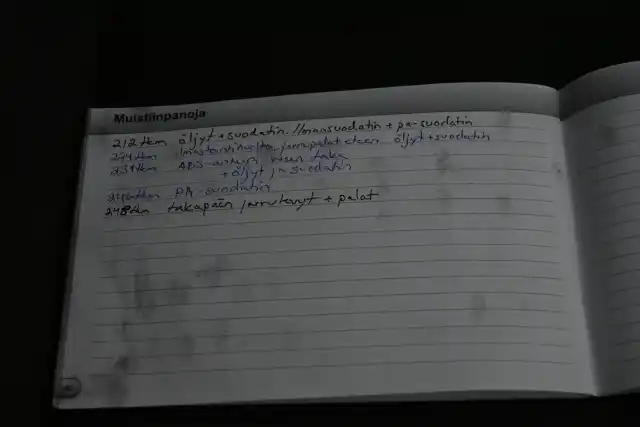 Muistiinpanoja
212tkm öljyt + suodatin. Ilmansuodatin + pa-suodatin
224tkm ilmastointihuolto, jarrupalat eteen öljyt + suodatin
234tkm ABS-anturi taka
+ öljyt ja suodatin
PA-suodatin
248tkm takapään jarrulevyt + palat